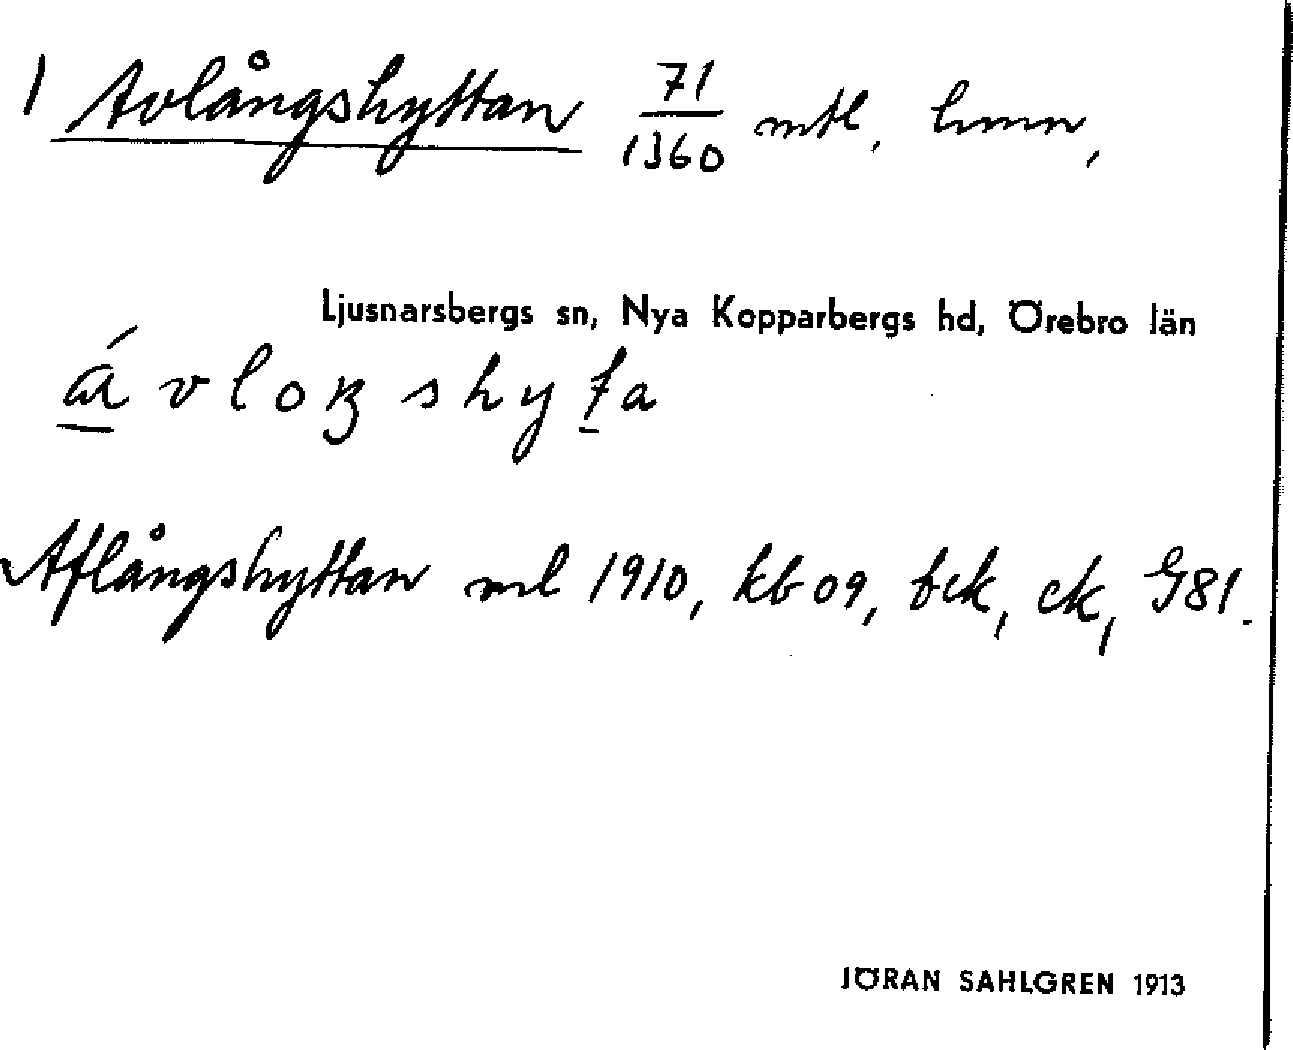 1 Avlångshyttan 71/1360 mtl, hmn,
Ljusnarsbergs sn, Nya Kopparbergs hd, Örebro län
ávloŋshyta
Aflångshyttan ml 1910, kb 09, bck, ck, G81.
JÖRAN SAHLGREN 1913